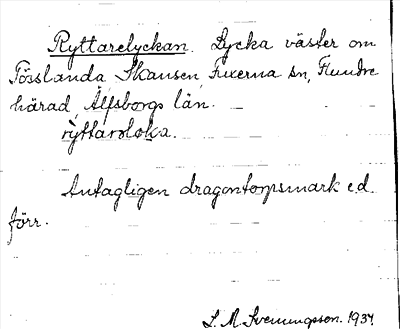 Ryttarelyckan. Lycka väster om
Tösslanda Skansen, Fuxerna sn, Flundre
härad, Älfsborgs län.
ryttarəloka.
Antagligen dragontorpsmark e.d.
förr.
L. M. Svenungsson. 1934